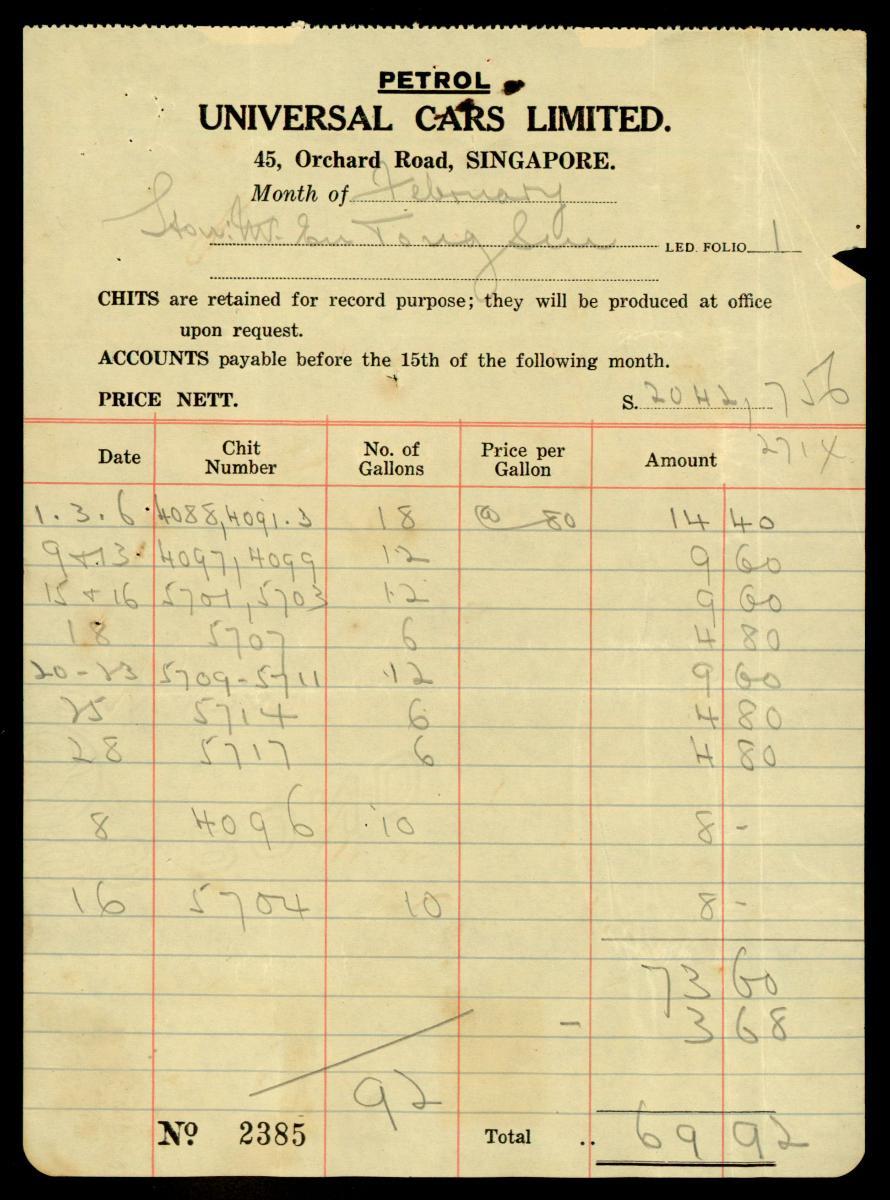 PETROL
UNIVERSAL CARS LIMITED.
45, Orchard Road, SINGAPORE.
Month of February
Hon: Mr. Eu Tong Sen
LED. FOLIO 1
CHITS are retained for record purpose; they will be produced at office
upon request.
ACCOUNTS payable before the 15th of the following month.
PRICE NETT. S. 2042, 756
2714
Date Chit Number No. of Gallons Price per Gallon Amount
1. 3. 6. 4088, 4091. 3 18 @ 80 14 40
9 & 13. 4097, 4099 12 9 60
15 & 16 5701, 5703 12 9 60
18 5707 6 4 80
20 - 23 5709 - 5711 12 9 60
25 5714 6 4 80
28 5717 6 4 80
8 4096 10 8 -
16 5704 10 8 -
73 60
- 3 68
92
No 2385 Total .. 69 92